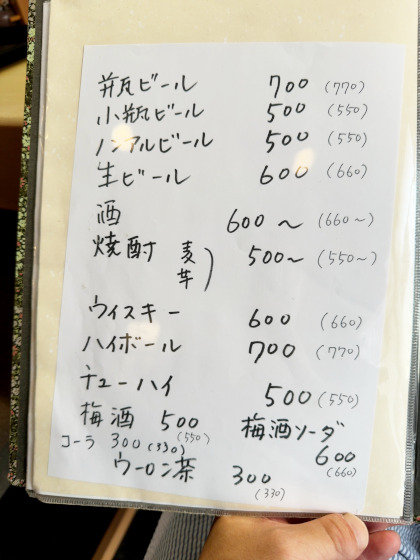 瓶ビール 700 (770)
小瓶ビール 500 (550)
ノンアルビール 500 (550)
生ビール 600 (660)
酒 600～ (660～)
焼酎 麦 芋) 500～ (550～)
ウィスキー 600 (660)
ハイボール 700 (770)
チューハイ 500 (550)
梅酒 500 (550) 梅酒ソーダ 600 (660)
コーラ 300 (330)
ウーロン茶 300 (330)